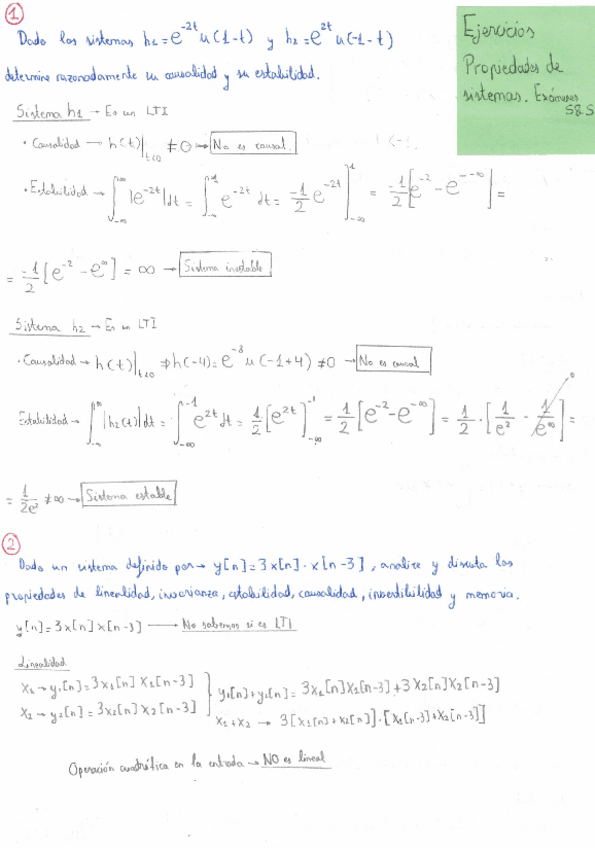 ① Dado los sistemas h₁=e^{-2t} u(1-t) y h₂=e^{2t} u(-1-t)
determine razonadamente su causalidad y su estabilidad.
Ejercicios
Propiedades de
sistemas. Exámenes
S&S
Sistema h1 → Es un LTI
• Causalidad → h(t)|_{t<0} ≠ 0 → No es causal.
• Estabilidad → ∫_{-∞}^{∞} |e^{-2t}|dt = ∫_{-∞}^{1} e^{-2t} dt = -1/2 e^{-2t}]_{-∞}^{1} = -1/2 [e^{-2} - e^{--∞}] =
= -1/2 [e^{-2} - e^{∞}] = ∞ → Sistema inestable
Sistema h2 → Es un LTI
• Causalidad → h(t)|_{t<0} ⇒ h(-4) = e^{-8} u(-1+4) ≠ 0 → No es causal
Estabilidad → ∫_{-∞}^{∞} |h₂(t)| dt = ∫_{-∞}^{-1} e^{2t} dt = 1/2 [e^{2t}]_{-∞}^{-1} = 1/2 [e^{-2} - e^{-∞}] = 1/2 · [1/e² - 1/e^{∞}] =
0
= 1/2e² ≠ ∞ → Sistema estable
② Dado un sistema definido por → y[n] = 3x[n] · x[n-3], analice y discuta las
propiedades de linealidad, invarianza, estabilidad, causalidad, invertibilidad y memoria.
y[n] = 3x[n] x[n-3] → No sabemos si es LTI
Linealidad
X₁ → y₁[n] = 3x₁[n] X₁[n-3]
X₂ → y₂[n] = 3x₂[n] X₂[n-3]
y₁[n] + y₂[n] = 3x₁[n]X₁[n-3] + 3X₂[n]X₂[n-3]
X₁+X₂ → 3[x₁[n] + x₂[n]]·[X₁[n-3] + X₂[n-3]]
Operación cuadrática en la entrada → NO es lineal